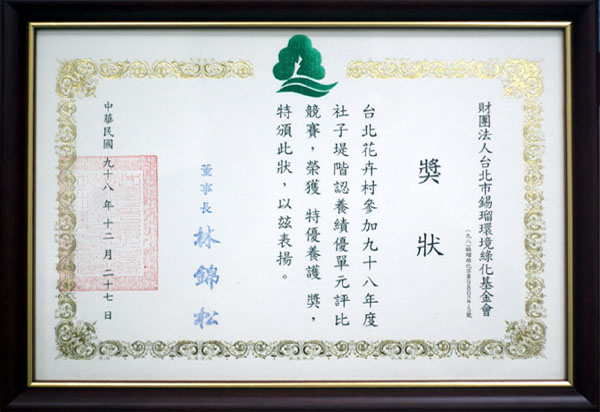 財團法人台北市錫瑠環境綠化基金會
獎狀
台北花卉村參加九十八年度
社子堤階認養績優單元評比
競賽，榮獲 特優養護 獎，
特頒此狀，以茲表揚。
董事長 林錦松
中華民國 九十八 年 十二 月 二十七 日